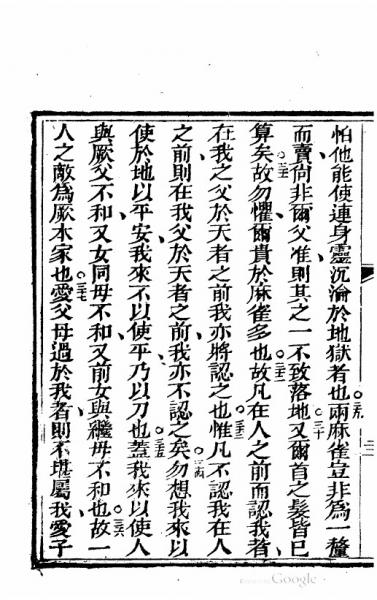 怕他能使連身靈沉淪於地獄者也兩麻雀豈非為一釐
而賣尚非爾父准則其之一不致落地又爾首之髮皆已
算矣故勿懼爾貴於麻雀多也故凡在人之前而認我者
在我之父於天者之前我亦將認之也惟凡不認我在人
之前則在我父於天者之前我亦不認之矣勿想我來以
使於地以平安我來不以使平乃以刀也蓋我來以使人
與厥父不和又女同母不和又前女與繼母不和也故一
人之敵為厥本家也愛父母過於我者則不堪屬我愛子
Google